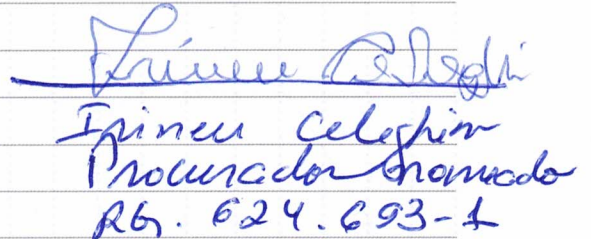 Irineu Celeghin
Irineu Celeghin
Procurador nomeado
RG. 624.693-1